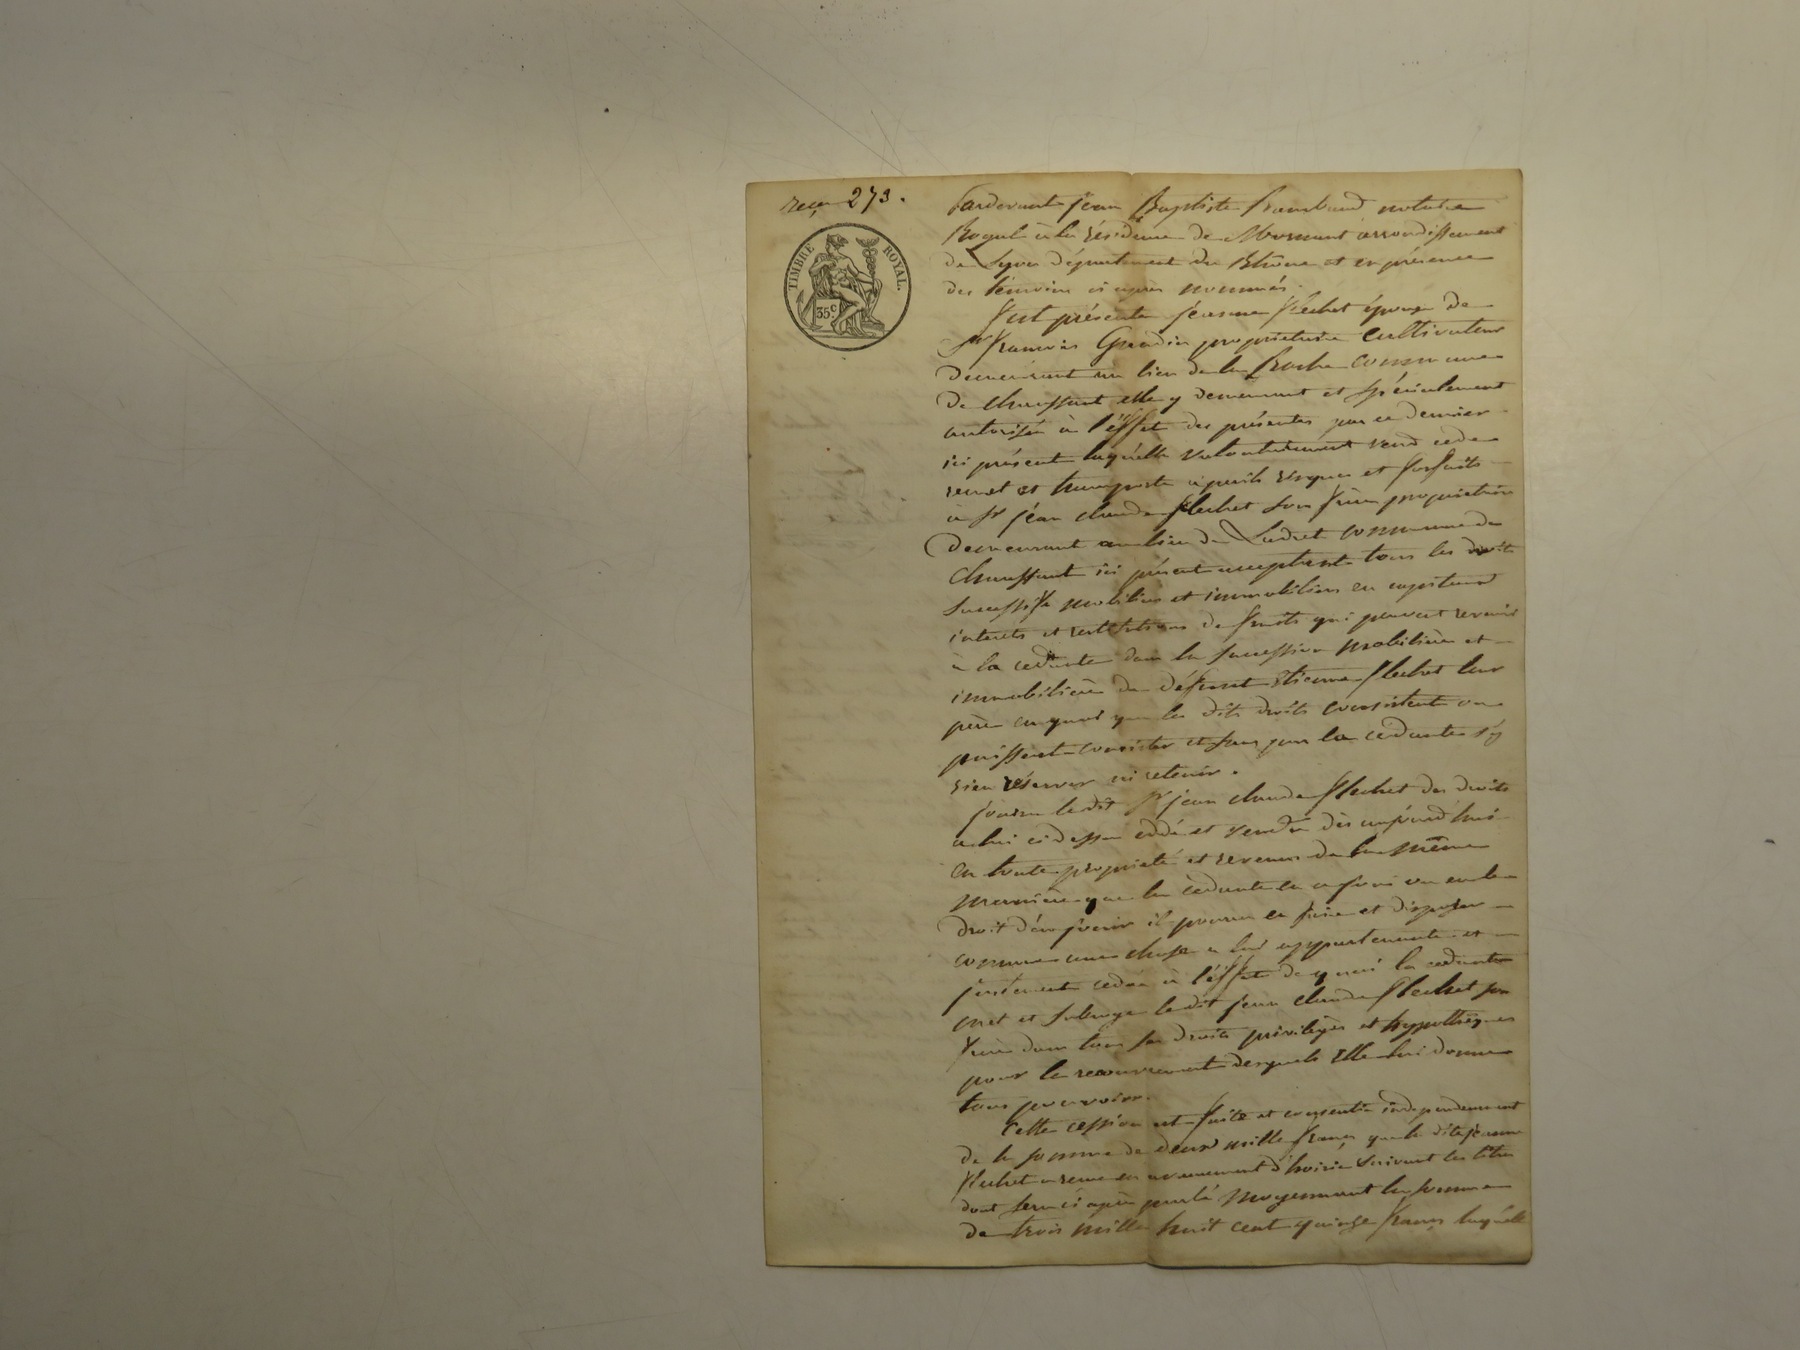 reçu 273.
TIMBRE ROYAL.
35 c
Pardevant jean Baptiste Rambaud notaire
Royal à la résidence de Mornant arrondissement
de Lyon département du Rhône et en présence
des témoins ci après nommés.
fut présente jeanne flechet épouse de
Sr françois Goudin propriétaire cultivateur
demeurant au lieu de la Roche commune
de chaussant elle y demeurant et spécialement
autorisée à l'éffet des présentes par ce dernier
ici présent laquelle volontairement vend cède
remet et transporte à périls risques et forfaits
à Sr jean claude flechet son frère propriétaire
demeurant au lieu de Ludret commune de
chaussant ici présent acceptant tous les droits
successifs mobiliers et immobiliers en capitaux
interets et restitutions de fruits qui peuvent revenir
à la cédante dans la succession mobilière et
immobilière de défunt Etienne flechet leur
père en quoi que les dits droits consistent ou
puissent consister et sans par la cédante s'y
rien réserver ni retenir.
jouira ledit Sr jean claude flechet des droits
a lui ci dessus cédés et vendu dès aujourd'hui
en toute propriété et revenus de la même
manière que la cédante en a joui ou eu le
droit d'en jouir il pourra en faire et disposer
comme une chose a lui appartenante et
justement cédée à l'éffet de quoi la cédante
met et subroge ledit jean claude flechet son
frère dans tous ses droits privilèges et hypothèques
pour le recouvrement desquels Elle lui donne
tous pouvoirs.
Cette cession est faite et consentie indépendament
de la somme de deux mille francs que la dite jeanne
flechet a reçue en avancement d'hoirie suivant les titres
dont sera ci après parlé moyennant la somme
de trois mille huit cent quinze francs laquelle